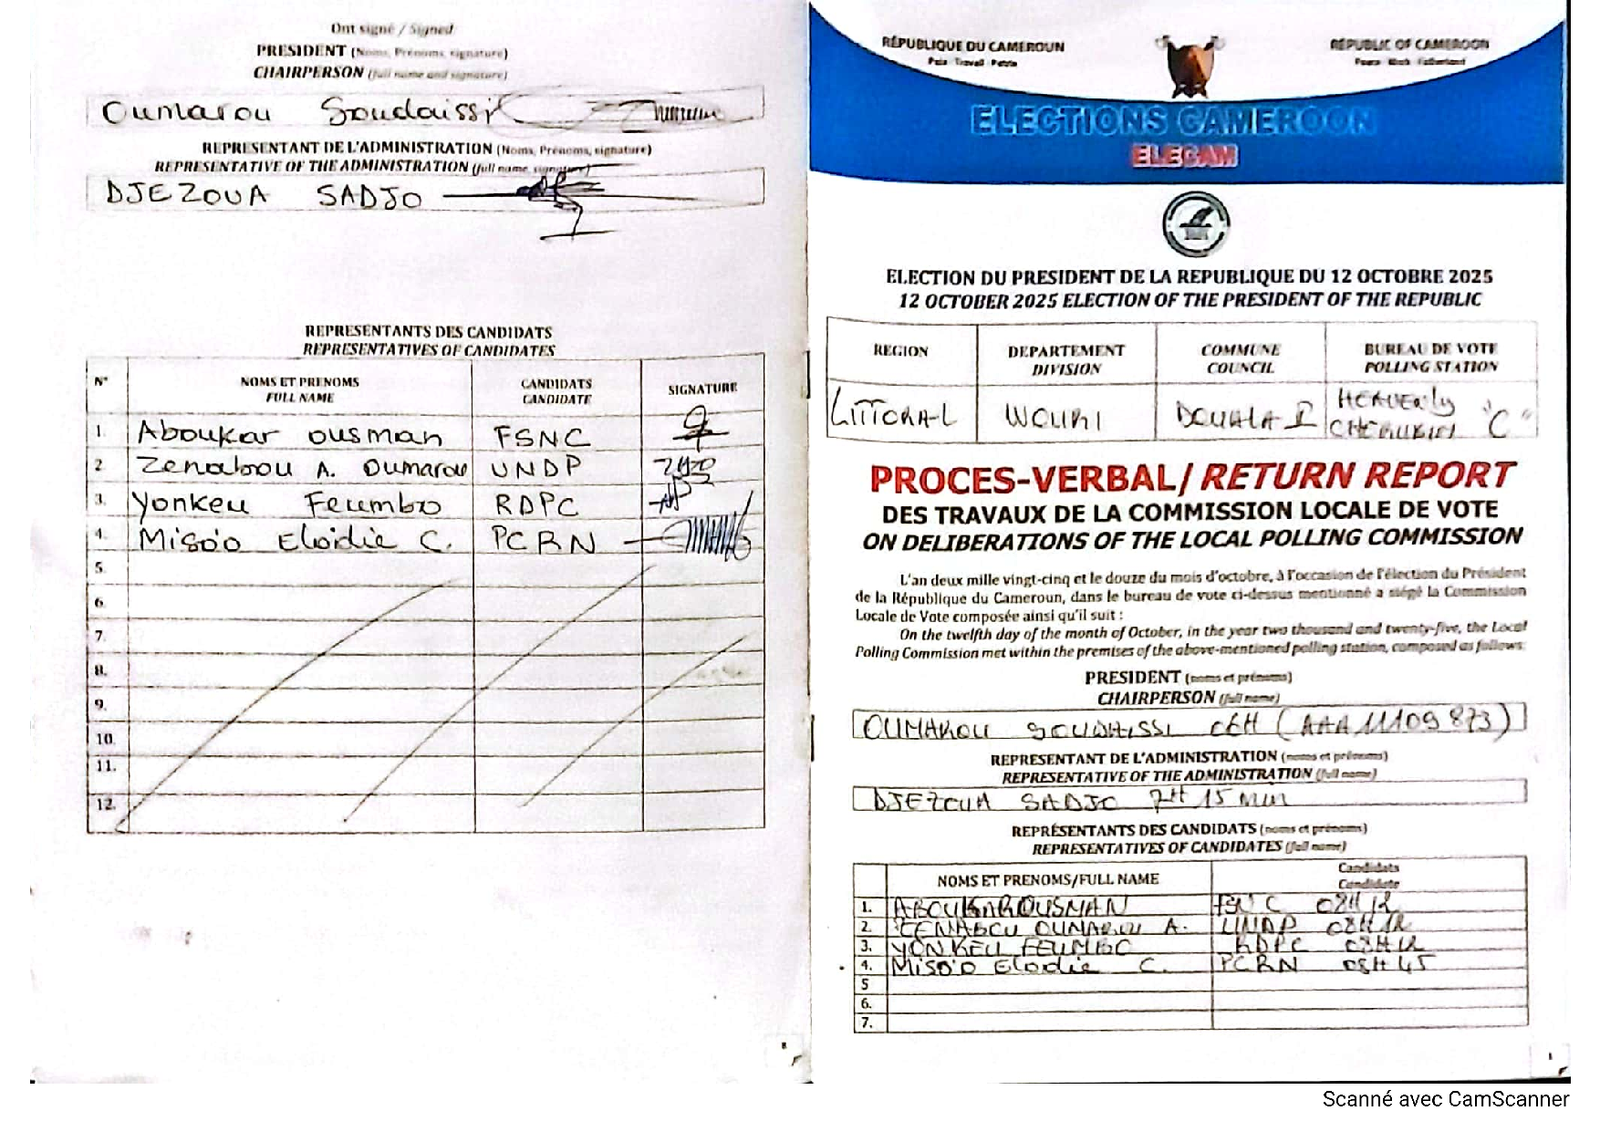 Ont signé / Signed
PRESIDENT (Noms, Prénoms, signature)
CHAIRPERSON (full name and signature)
Oumarou Soudaissi
REPRESENTANT DE L'ADMINISTRATION (Noms, Prénoms, signature)
REPRESENTATIVE OF THE ADMINISTRATION (full name, signature)
DJEZOUA SADJO
REPRESENTANTS DES CANDIDATS
REPRESENTATIVES OF CANDIDATES
N° NOMS ET PRENOMS CANDIDATS SIGNATURE
FULL NAME CANDIDATE
1. Aboukar ousman FSNC
2. Zenabou A. Oumarou UNDP
3. Yonkeu Feumbo RDPC
4. Miso'o Elodie C. PCRN
5.
6.
7.
8.
9.
10.
11.
12.
RÉPUBLIQUE DU CAMEROUN REPUBLIC OF CAMEROON
Paix - Travail - Patrie Peace - Work - Fatherland
ELECTIONS CAMEROON
ELECAM
ELECTION DU PRESIDENT DE LA REPUBLIQUE DU 12 OCTOBRE 2025
12 OCTOBER 2025 ELECTION OF THE PRESIDENT OF THE REPUBLIC
REGION DEPARTEMENT COMMUNE BUREAU DE VOTE
DIVISION COUNCIL POLLING STATION
LITTORAL WOURI DOUALA I HEAVENLY
CHERUBIM "C"
PROCES-VERBAL/ RETURN REPORT
DES TRAVAUX DE LA COMMISSION LOCALE DE VOTE
ON DELIBERATIONS OF THE LOCAL POLLING COMMISSION
L'an deux mille vingt-cinq et le douze du mois d'octobre, à l'occasion de l'élection du Président
de la République du Cameroun, dans le bureau de vote ci-dessus mentionné a siégé la Commission
Locale de Vote composée ainsi qu'il suit :
On the twelfth day of the month of October, in the year two thousand and twenty-five, the Local
Polling Commission met within the premises of the above-mentioned polling station, composed as follows:
PRESIDENT (noms et prénoms)
CHAIRPERSON (full name)
OUMAROU SOUDAISSI 06H (AAA11109873)
REPRESENTANT DE L'ADMINISTRATION (noms et prénoms)
REPRESENTATIVE OF THE ADMINISTRATION (full name)
DJEZOUA SADJO 7H 15 min
REPRÉSENTANTS DES CANDIDATS (noms et prénoms)
REPRESENTATIVES OF CANDIDATES (full name)
NOMS ET PRENOMS/FULL NAME Candidats
Candidate
1. ABOUKAR OUSMAN FSNC 08H12
2. ZENABOU OUMAROU A. UNDP 08H12
3. YONKEU FEUMBO RDPC 08H12
4. Miso'o Elodie C. PCRN 08H45
5
6.
7.
1
Scanné avec CamScanner